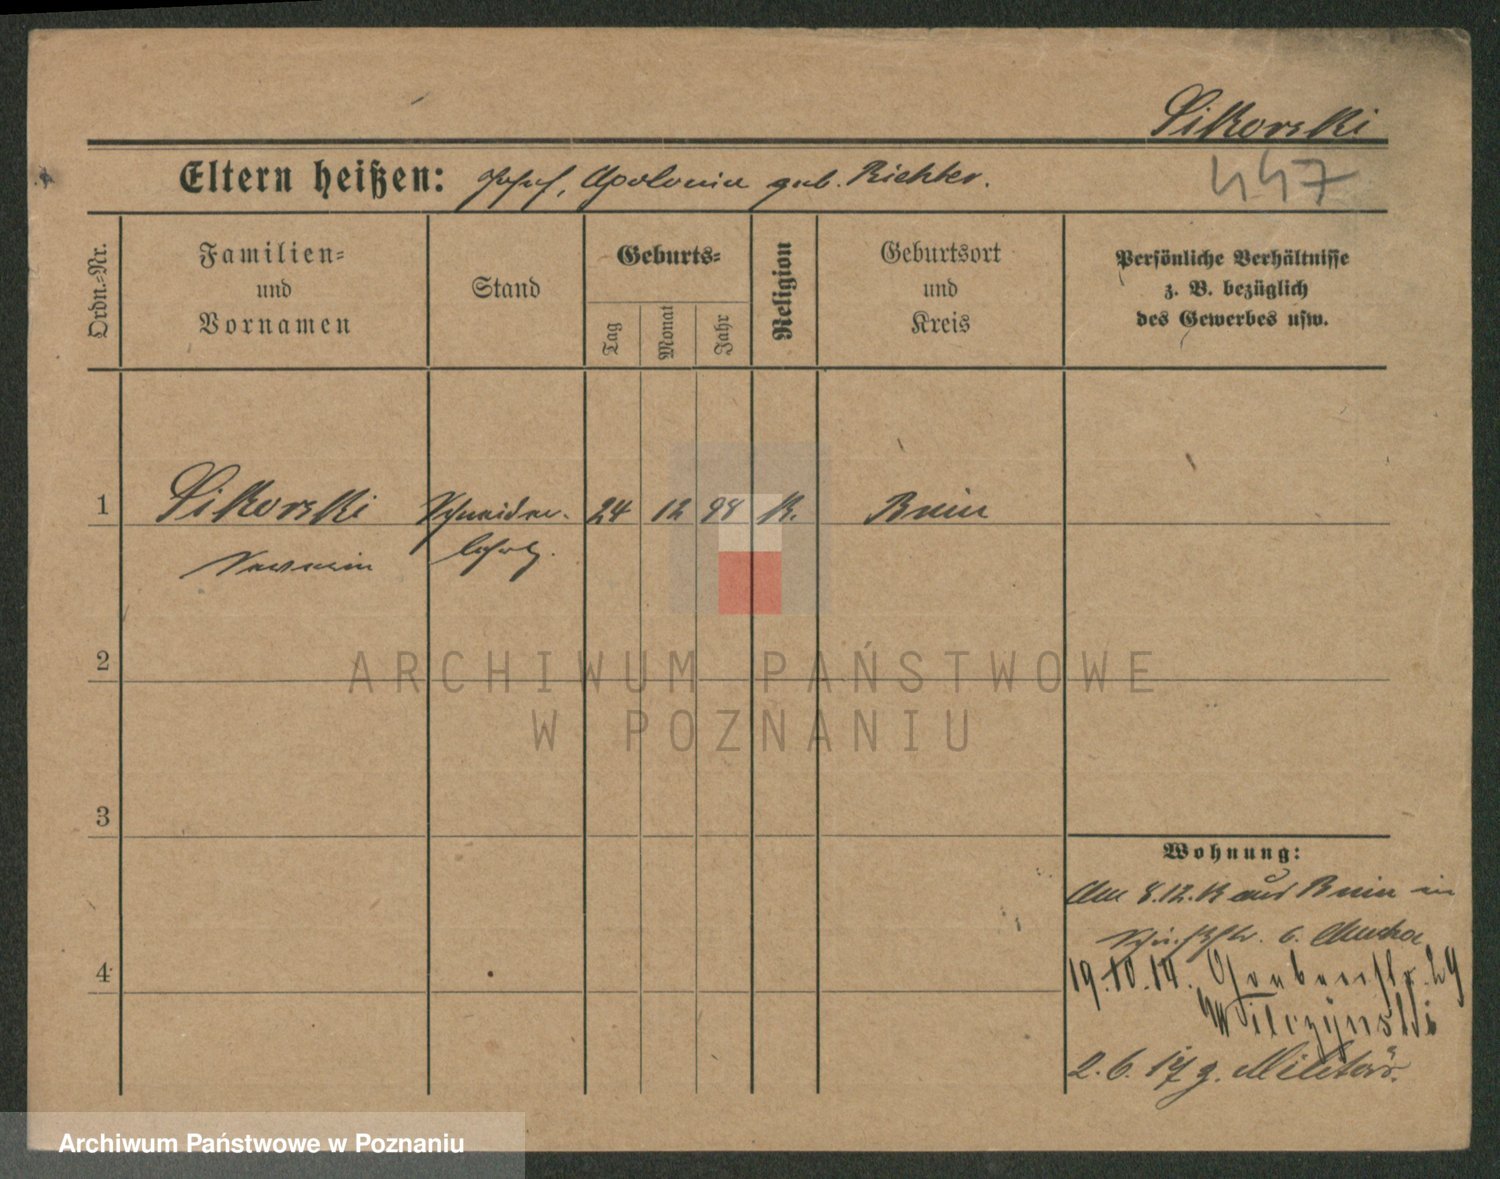 Sikorski
Eltern heißen: Josef, Apolonia geb. Richter.
447
Ordn.-Nr.
Familien-
und
Vornamen
Stand
Geburts-
Tag
Monat
Jahr
Religion
Geburtsort
und
Kreis
Persönliche Verhältnisse
z. B. bezüglich
des Gewerbes usw.
1 Sikorski Schneider- 24 12 98 K. Bnin
Severin lehrlg.
2
3
4
Wohnung:
Am 8.12.13 aus Bnin in
6.
19.10.14. Grabenstr. 29
Wilczynski
2.6.17 z. Militär.
ARCHIWUM PAŃSTWOWE
W POZNANIU
Archiwum Państwowe w Poznaniu